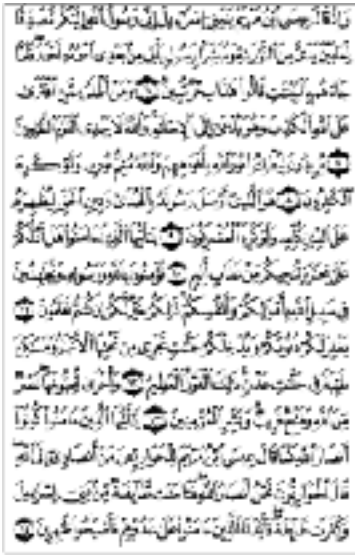 وإذ قال عيسى ابن مريم يبني إسرءيل إني رسول الله إليكم مصدقا
لما بين يدي من التورىة ومبشرا برسول يأتي من بعدي اسمه أحمد فلما
جاءهم بالبينت قالوا هذا سحر مبين ٦ ومن أظلم ممن افترى
على الله الكذب وهو يدعى إلى الإسلم والله لا يهدي القوم الظلمين
٧ يريدون ليطفئوا نور الله بأفوههم والله متم نوره ولو كره
الكفرون ٨ هو الذي أرسل رسوله بالهدى ودين الحق ليظهره
على الدين كله ولو كره المشركون ٩ يأيها الذين ءامنوا هل أدلكم
على تجرة تنجيكم من عذاب أليم ١٠ تؤمنون بالله ورسوله وتجهدون
في سبيل الله بأمولكم وأنفسكم ذلكم خير لكم إن كنتم تعلمون ١١
يغفر لكم ذنوبكم ويدخلكم جنت تجري من تحتها الأنهر ومسكن
طيبة في جنت عدن ذلك الفوز العظيم ١٢ وأخرى تحبونها نصر
من الله وفتح قريب وبشر المؤمنين ١٣ يأيها الذين ءامنوا كونوا
أنصار الله كما قال عيسى ابن مريم للحوارين من أنصاري إلى الله
قال الحواريون نحن أنصار الله فءامنت طائفة من بني إسرءيل
وكفرت طائفة فأيدنا الذين ءامنوا على عدوهم فأصبحوا ظهرين ١٤